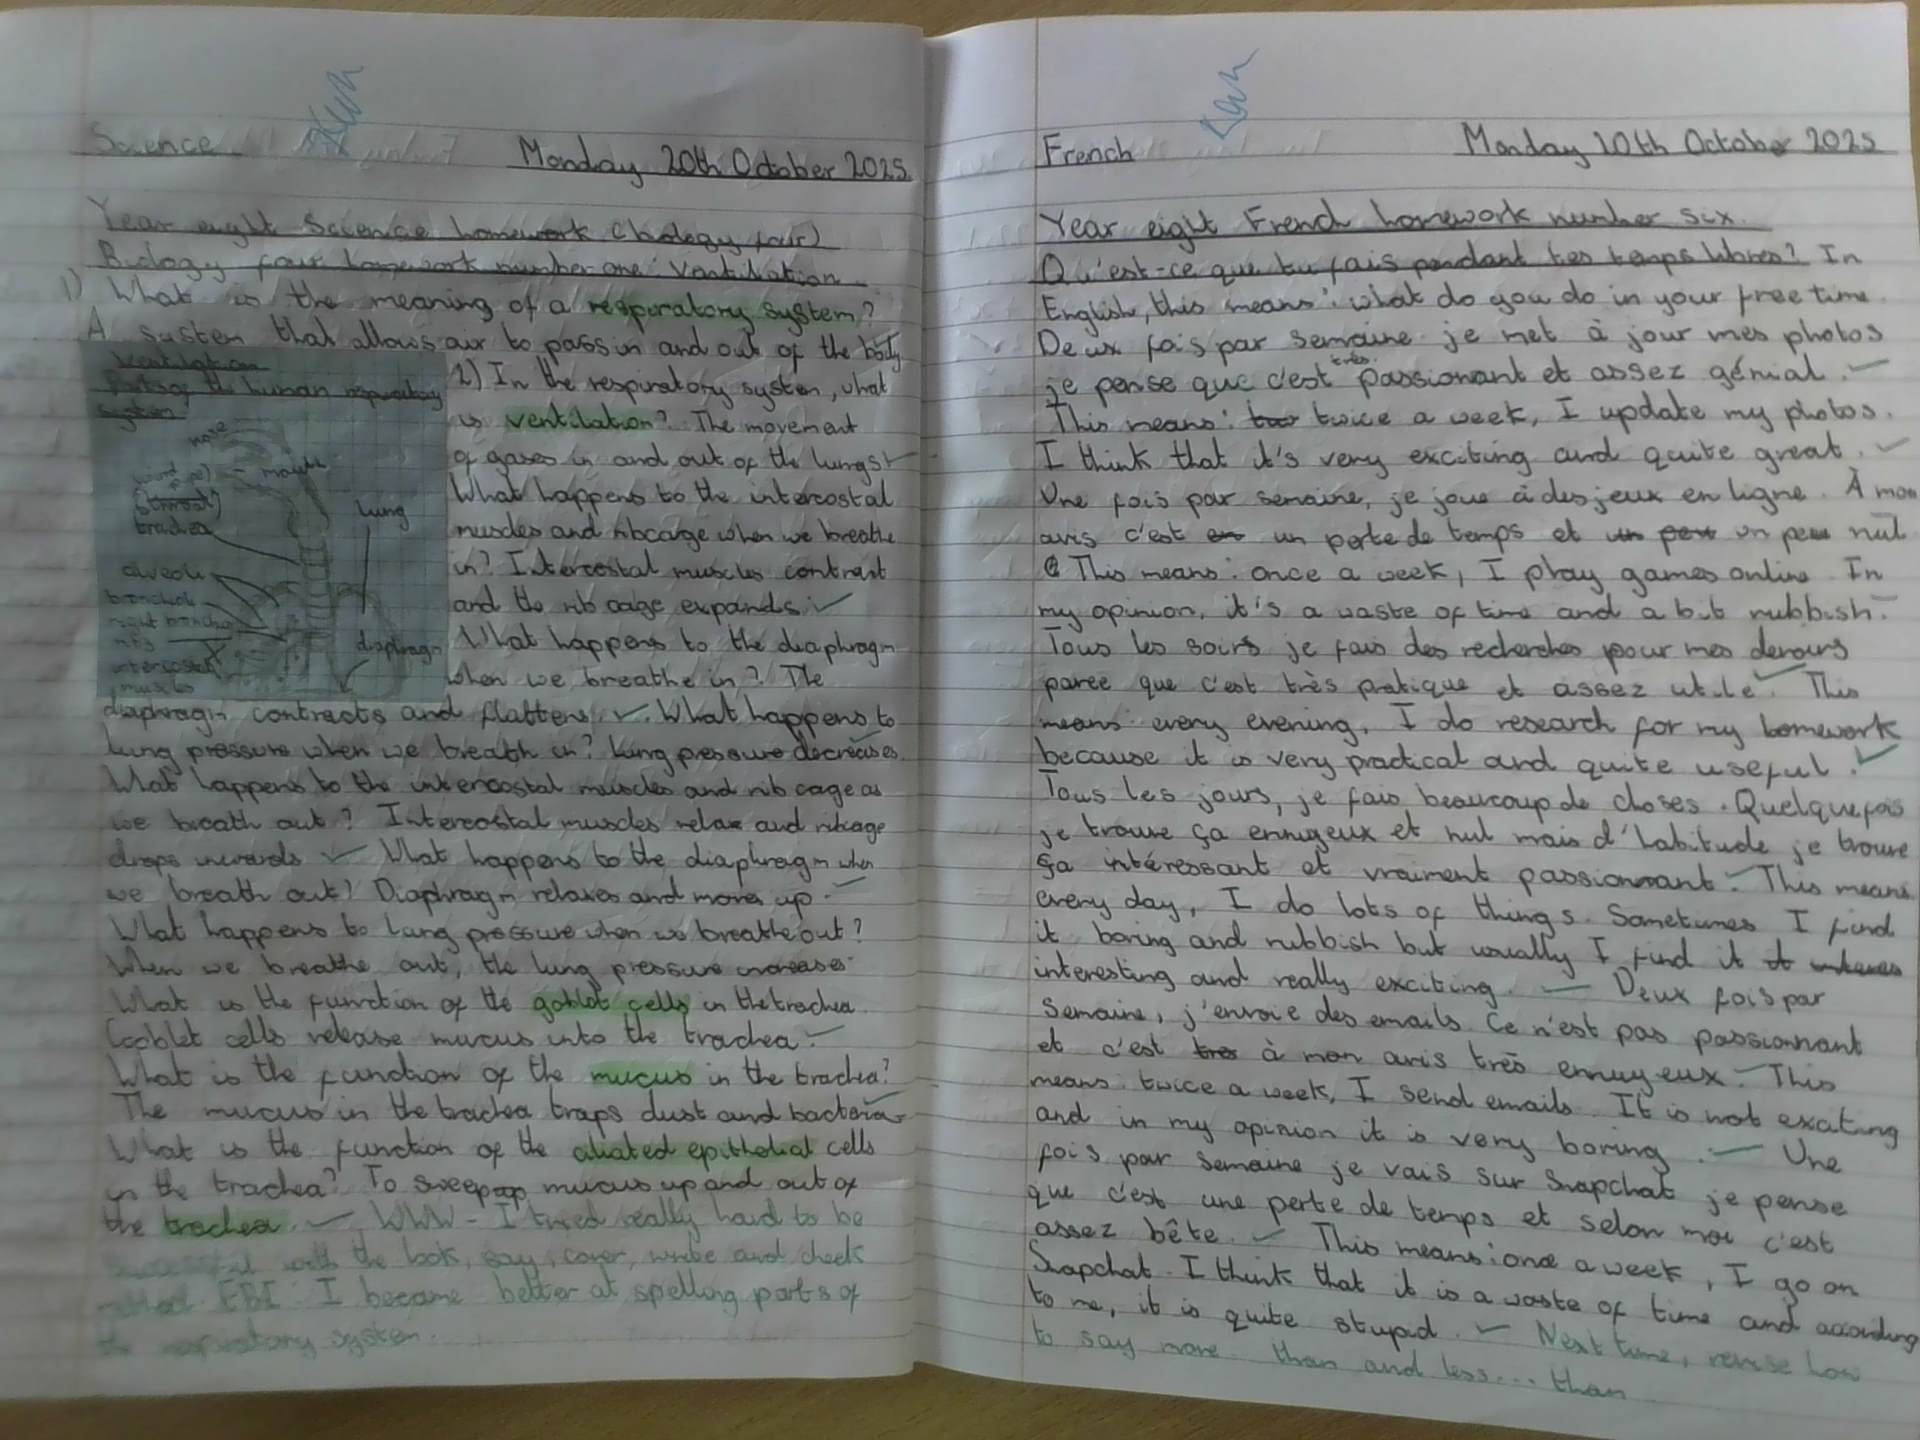 Science
Monday 20th October 2025.
Year eight Science homework (biology four)
Biology four homework number one: Ventilation
1) What is the meaning of a respiratory system?
A system that allows air to pass in and out of the body.
Ventilation
Parts of the human respiratory
system
nose
mouth
(throat)
trachea
lung
alveoli
bronchioles
right bronchus
ribs
intercostal
muscles
diaphragm
2) In the respiratory system, what
is ventilation? The movement
of gases in and out of the lungs
What happens to the intercostal
muscles and ribcage when we breathe
in? Intercostal muscles contract
and the rib cage expands.
What happens to the diaphragm
when we breathe in? The
diaphragm contracts and flattens. What happens to
lung pressure when we breath in? Lung pressure decreases.
What happens to the intercostal muscles and rib cage as
we breath out? Intercostal muscles relax and ribcage
drops inwards What happens to the diaphragm when
we breath out? Diaphragm relaxes and moves up.
What happens to lung pressure when we breathe out?
When we breathe out, the lung pressure increases.
What is the function of the goblet cells in the trachea.
Goblet cells release mucus into the trachea.
What is the function of the mucus in the trachea?
The mucus in the trachea traps dust and bacteria
What is the function of the ciliated epithelial cells
in the trachea? To sweep mucus up and out of
the trachea. WWW - I tried really hard to be
successful with the look, say, cover, write and check
method. EBI: I became better at spelling parts of
the respiratory system.
French
Monday 20th October 2025
Year eight French homework number six.
Qu'est-ce que tu fais pendant tes temps libres? In
English, this means: what do you do in your free time.
Deux fois par semaine je met à jour mes photos
je pense que c'est très passionant et assez génial.
This means: two twice a week, I update my photos.
I think that it's very exciting and quite great.
Une fois par semaine, je joue à des jeux en ligne. À mon
avis c'est en un perte de temps et un peu un peu nul
This means: once a week, I play games online. In
my opinion, it's a waste of time and a bit rubbish.
Tous les soirs je fais des recherches pour mes devoirs
parce que c'est très pratique et assez utile. This
means every evening, I do research for my homework
because it is very practical and quite useful.
Tous les jours, je fais beaucoup de choses. Quelquefois
je trouve ça ennuyeux et nul mais d'habitude je trouve
ça intéressant et vraiment passionnant. This means
every day, I do lots of things. Sometimes I find
it boring and rubbish but usually I find it it interes
interesting and really exciting. Deux fois par
semaine, j'envoie des emails. Ce n'est pas passionnant
et c'est très à mon avis très ennuyeux. This
means: twice a week, I send emails. It is not exciting
and in my opinion it is very boring. Une
fois par semaine je vais sur Snapchat je pense
que c'est une perte de temps et selon moi c'est
assez bête. This means: once a week, I go on
Snapchat. I think that it is a waste of time and according
to me, it is quite stupid. Next time, revise how
to say more than and less... than